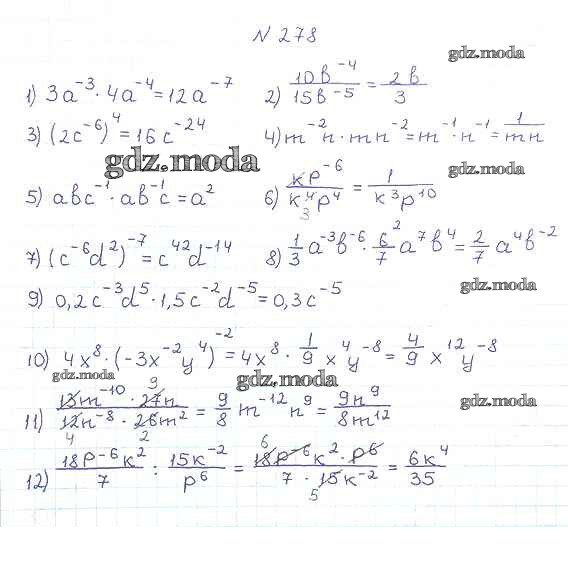 № 278
gdz.moda
1) 3a⁻³·4a⁻⁴=12a⁻⁷ 2) 10b⁻⁴/15b⁻⁵ = 2b/3
3) (2c⁻⁶)⁴=16c⁻²⁴ 4) m⁻²n·mn⁻²=m⁻¹·n⁻¹=1/mn
gdz.moda gdz.moda
5) abc⁻¹·ab⁻¹c=a² 6) kp⁻⁶/k⁴p⁴ = 1/k³p¹⁰
3
7) (c⁻⁶d²)⁻⁷=c⁴²d⁻¹⁴ 8) 1/3 a⁻³b⁻⁶·6/7 a⁷b⁴=2/7 a⁴b⁻²
2
9) 0,2c⁻³d⁵·1,5c⁻²d⁻⁵=0,3c⁻⁵
gdz.moda
10) 4x⁸·(-3x⁻²y⁴)⁻²=4x⁸·1/9 x⁴y⁻⁸=4/9 x¹²y⁻⁸
gdz.moda gdz.moda
9
11) 13m⁻¹⁰·27n/12n⁻⁸·26m² = 9/8 m⁻¹²n⁹=9n⁹/8m¹²
gdz.moda
4 2
6
12) 18p⁻⁶k²/7 : 15k⁻²/p⁶ = 18p⁻⁶k²·p⁶/7·15k⁻² = 6k⁴/35
5